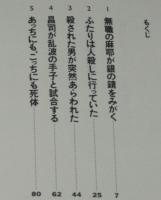 もくじ
1 無職の麻耶が銀の鏡をみがく 7
2 ふたりは人殺しに行っていた 25
3 殺された男が突然あらわれた 44
4 昌司が乱波の手子と試合する 62
5 あっちにも、こっちにも死体 80